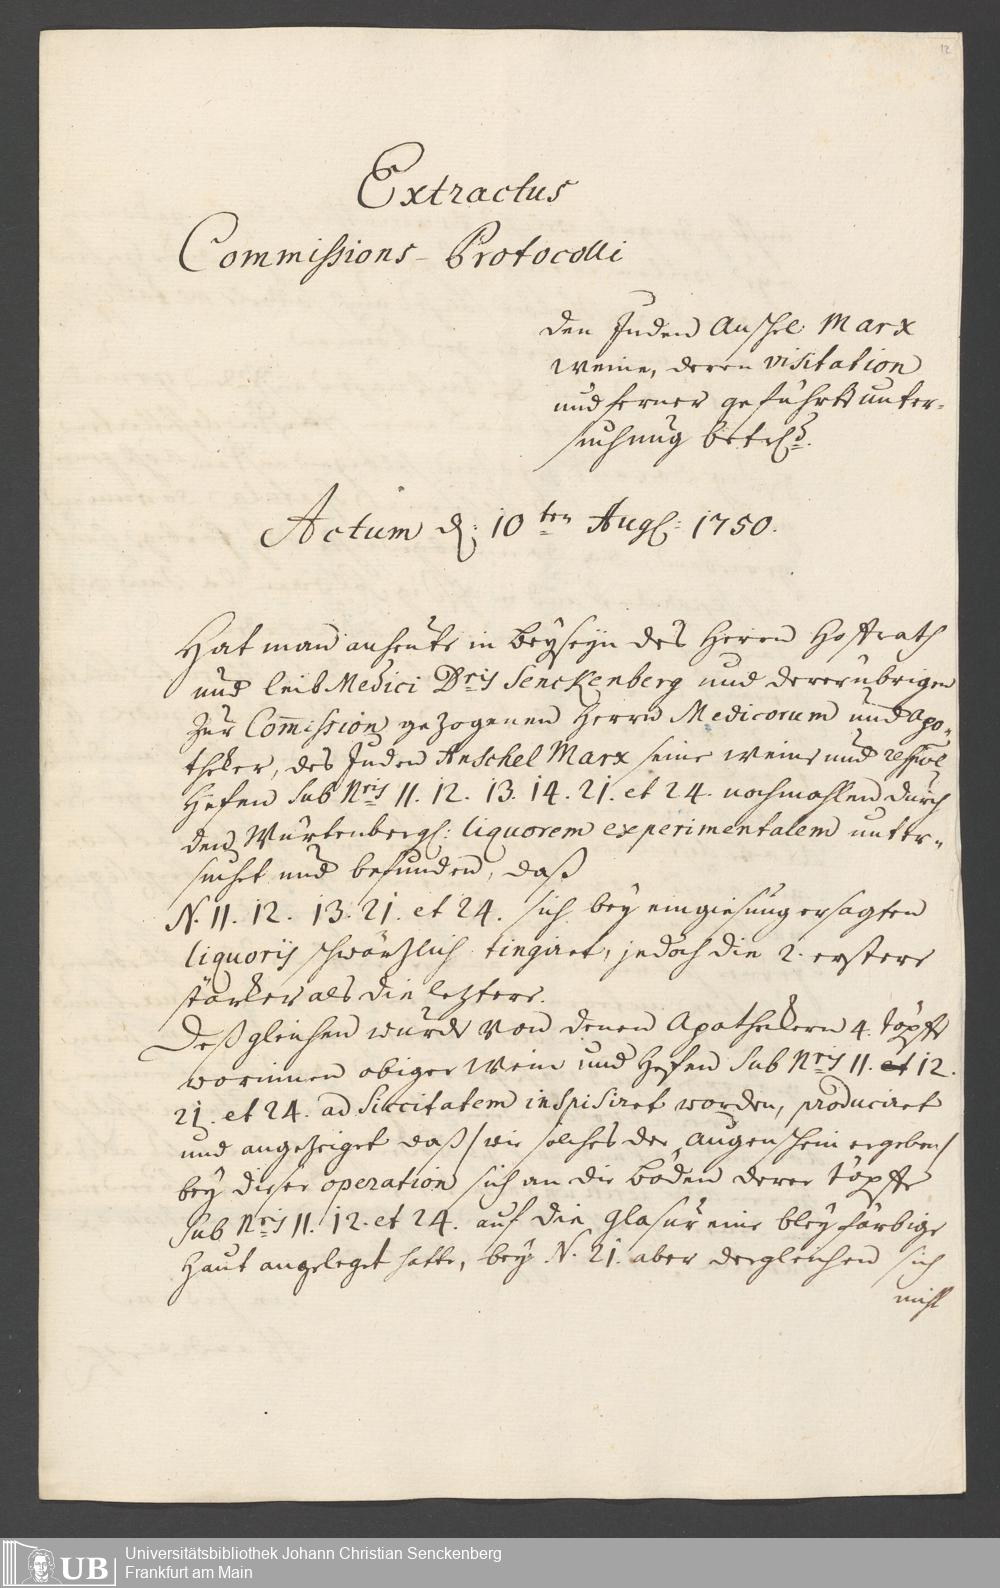 12
Extractus
Commissions-Protocolli
den Juden Anschel Marx
weine, deren visitation
und ferner geführte unter-
suchung betr.
Actum d: 10ten Aug: 1750.
Hat man anheute in beyseyn des Herrn Hoffrath
und leib Medici Dris Senckenberg und derer übrigen
zur Commission gezogenen Herrn Medicorum und Apo-
theker, des Juden Anschel Marx seine weine und respive
Hefen sub Nris 11. 12. 13. 14. 21. et 24. nochmahlen durch
den Würtenbergl: liquorem experimentalem unter-
suchet und befunden, daß
N. 11. 12. 13. 21. et 24. sich bey eingiesung ersagten
liquoris schwärzlich tingiret, jedoch die 2. erstere
stärker als die letztere.
Deßgleichen wurde von denen Apothekern 4. töpffe
worinnen obiger Wein und Hefen sub Nris 11. et 12.
21. et 24. ad siccitatem inspisiret worden, produciret
und angezeiget daß / wie solches der augenschein ergeben /
bey dieser operation sich an die böden derer töpffe
sub Nris 11. 12. et 24. auf die glasur eine bleyfärbige
Haut angeleget hatte, bey N. 21. aber dergleichen sich
nicht
UB
Universitätsbibliothek Johann Christian Senckenberg
Frankfurt am Main